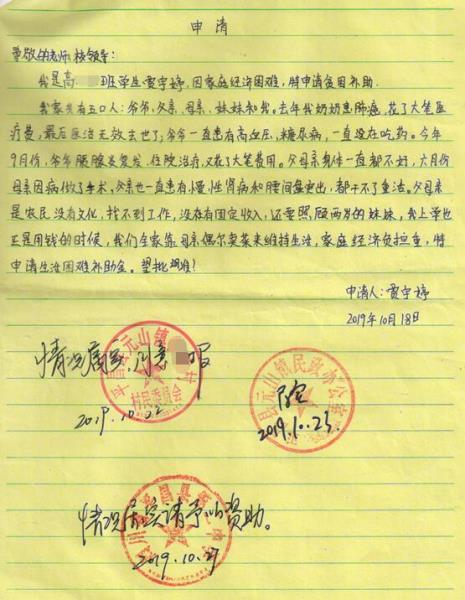 申请
尊敬的老师、校领导：
我是高 班学生贾宇婷，因家庭经济困难，特申请贫困补助。
我家共有五口人：爷爷、父亲、母亲、妹妹和我。去年我奶奶患肺癌，花了大笔医
疗费，最后医治无效去世了；爷爷一直患有高血压，糖尿病，一直没在吃药。今年
9月份，爷爷胰腺炎复发，住院治疗，又花了大笔费用。父母亲身体一直都不好，六月份
母亲因病做了手术，父亲也一直患有慢性肾病和腰间盘突出，都干不了重活。父母亲
是农民，没有文化，找不到工作，没有固定收入，还要照顾两岁的妹妹，我上学也
正是用钱的时候，我们全家靠母亲偶尔卖菜来维持生活，家庭经济负担重，特
申请生活困难补助金。望批准！
申请人：贾宇婷
2019年10月18日
情况属实，同意 报
元山镇 村
村民委员会
2019.10.22
县元山镇民政办公室
2019.10.23.
情况属实请予以资助。
2019.10.27